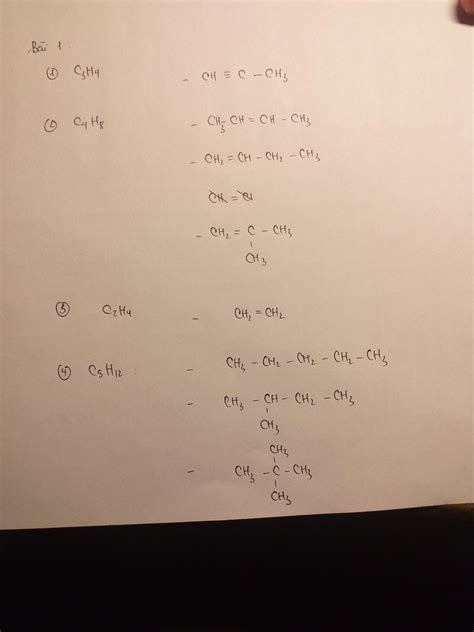 Bài 1 :
① C3H4 - CH ≡ C - CH3
② C4H8 - CH3 - CH = CH - CH3
- CH2 = CH - CH2 - CH3
- CH2 = C - CH3
CH3
③ C2H4 - CH2 = CH2
④ C5H12 : - CH3 - CH2 - CH2 - CH2 - CH3
- CH3 - CH - CH2 - CH3
CH3
CH3
- CH3 - C - CH3
CH3